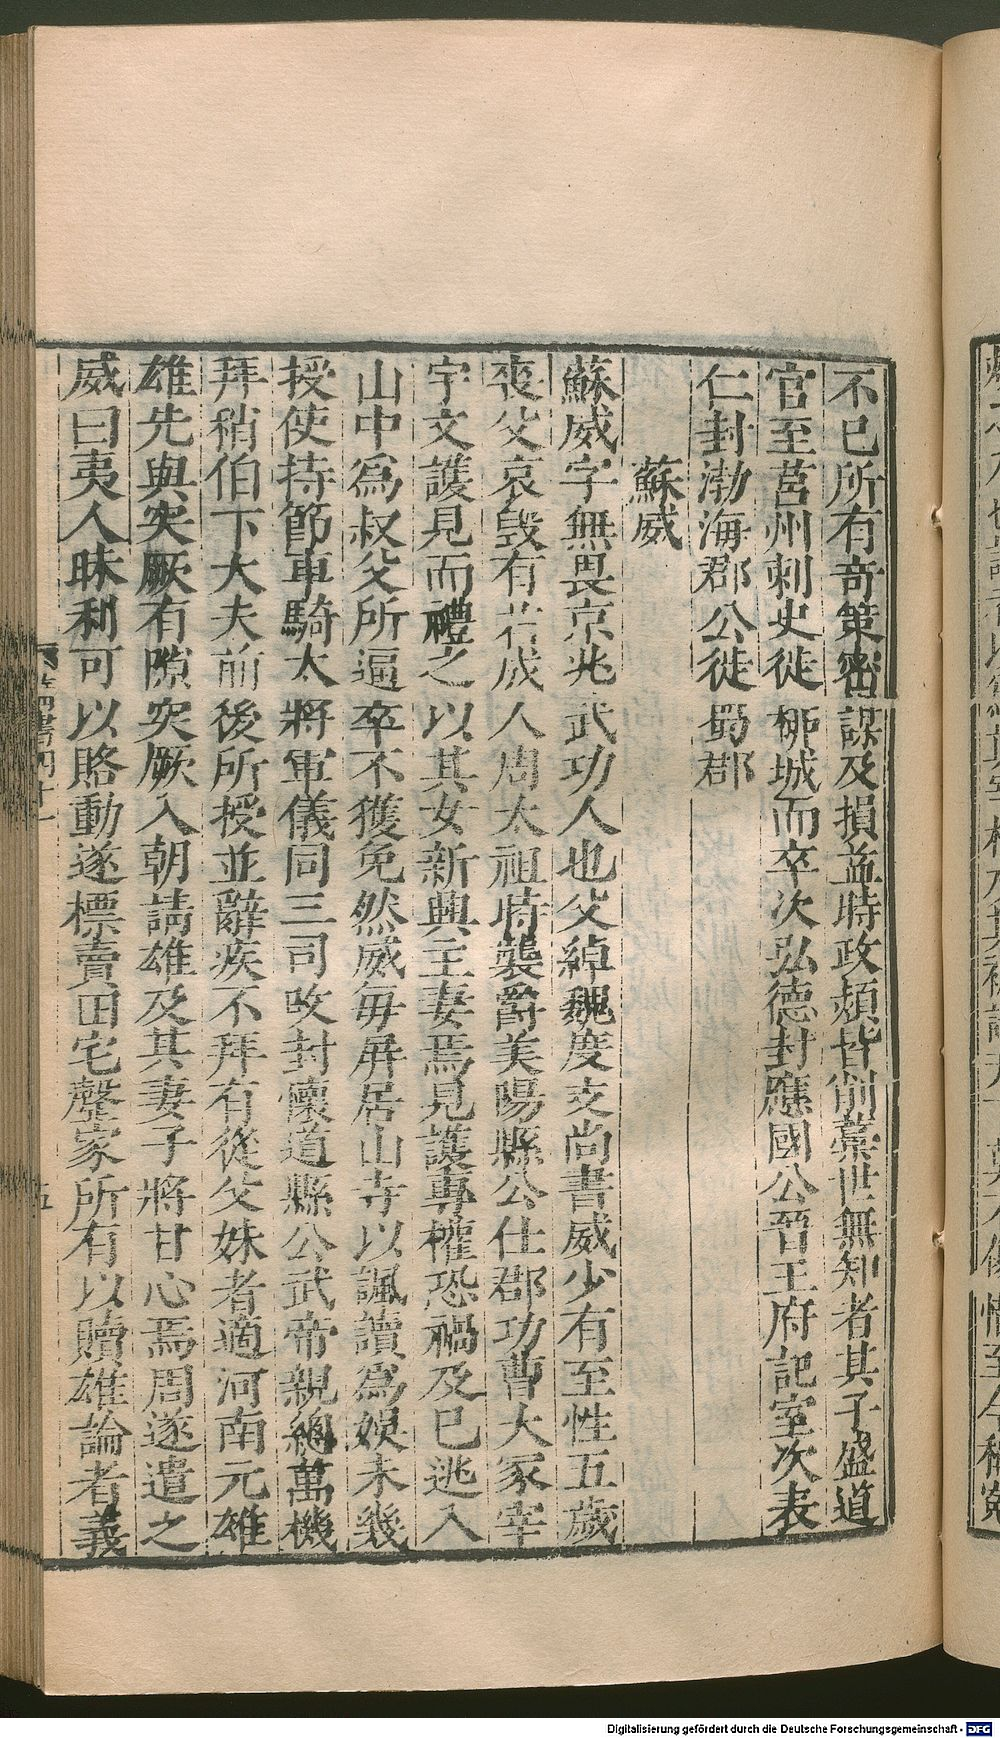 不已所有奇策密謀及損益時政熲皆削藁世無知者其子盛道
官至莒州刺史徙柳城而卒次弘德封應國公晉王府記室次表
仁封渤海郡公徙蜀郡
蘇威
蘇威字無畏京兆武功人也父綽魏度支尚書威少有至性五歲
喪父哀毀有若成人周太祖時襲爵美陽縣公仕郡功曹大冢宰
宇文護見而禮之以其女新興主妻焉見護專權恐禍及己逃入
山中爲叔父所逼卒不獲免然威每屏居山寺以諷讀爲娛未幾
授使持節車騎大將軍儀同三司改封懷道縣公武帝親總萬機
拜稍伯下大夫前後所授並辭疾不拜有從父妹者適河南元雄
雄先與突厥有隙突厥入朝請雄及其妻子將甘心焉周遂遣之
威曰夷人昧利可以賂動遂標賣田宅罄家所有以贖雄論者義
五
Digitalisierung gefördert durch die Deutsche Forschungsgemeinschaft - DFG